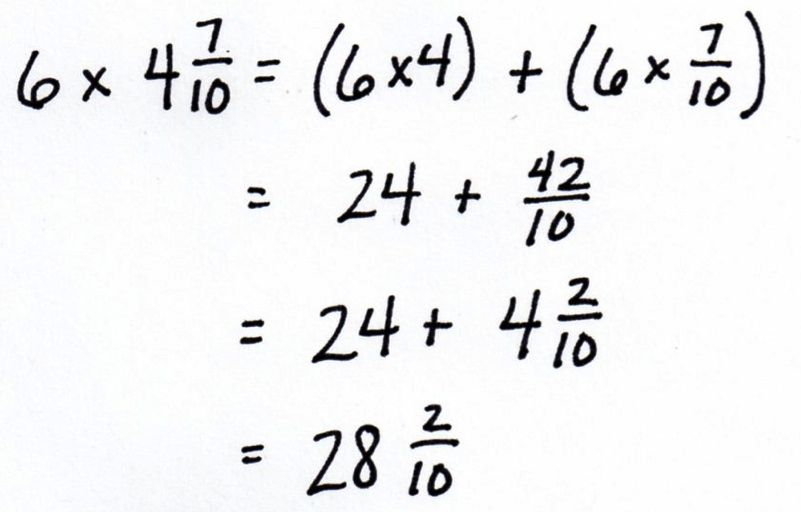 6 × 4 7/10 = (6×4) + (6 × 7/10)
= 24 + 42/10
= 24 + 4 2/10
= 28 2/10